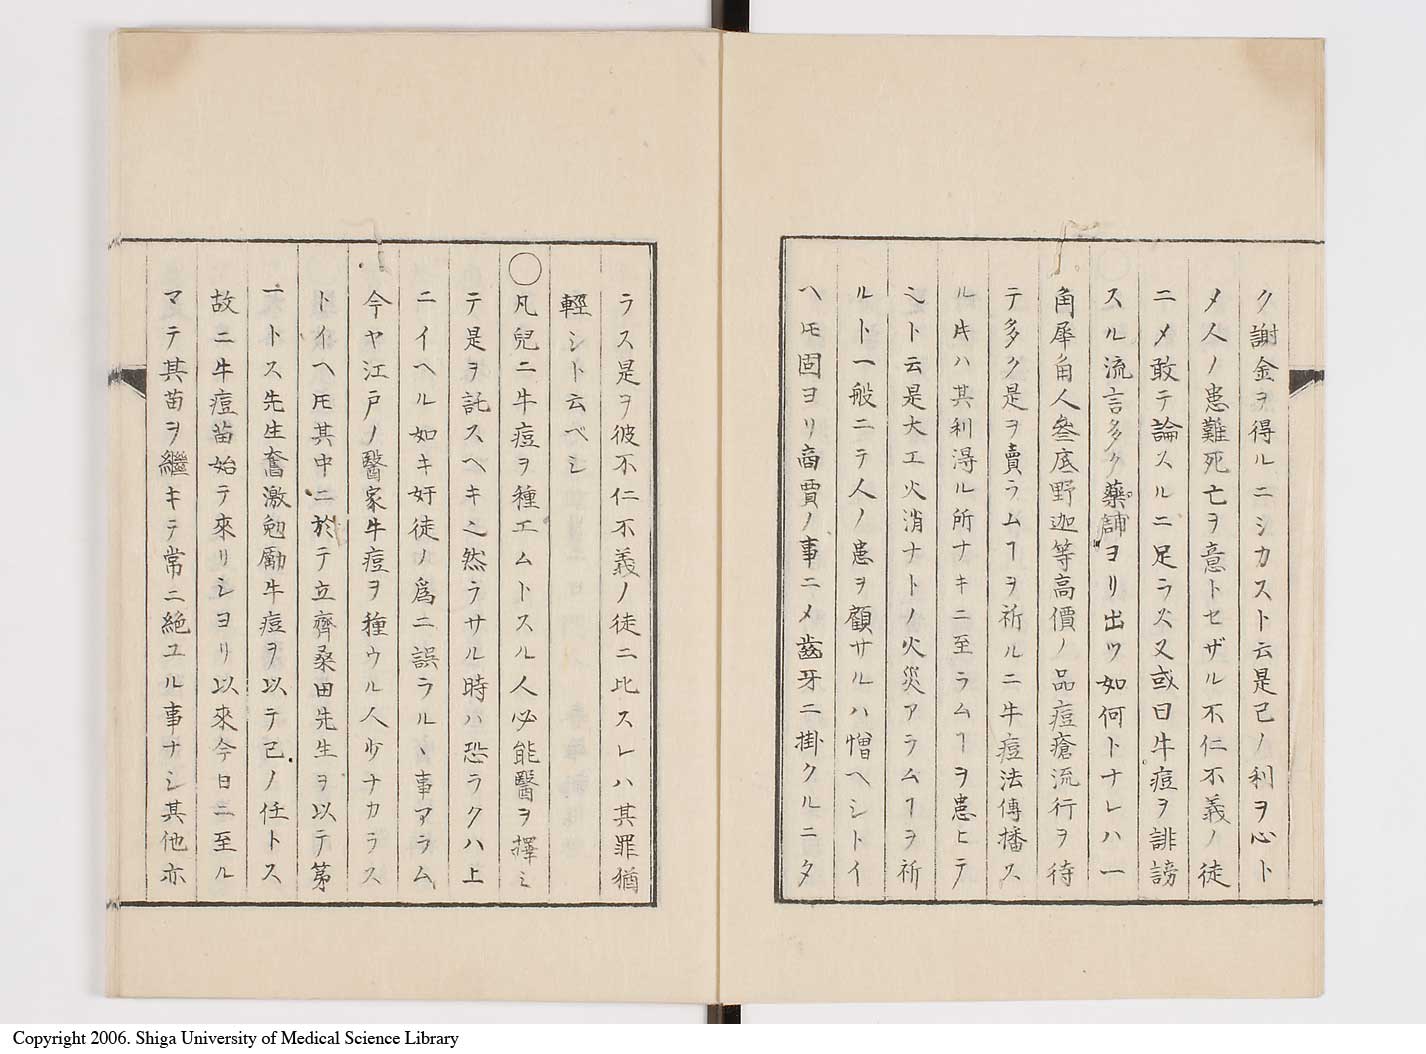 ク謝金ヲ得ルニシカスト云是己ノ利ヲ心ト
メ人ノ患難死亡ヲ意トセザル不仁不義ノ徒
ニメ敢テ論スルニ足ラ火又或曰牛痘ヲ誹謗
スル流言多ク藥舖ヨリ出ツ如何トナレハ一
角犀角人參底野迦等高價ノ品痘瘡流行ヲ待
テ多ク是ヲ賣ラムヿヲ祈ルニ牛痘法傳播ス
ル片ハ其利得ル所ナキニ至ラムヿヲ患ヒテ
シト云是大工火消ナトノ火災アラムヿヲ祈
ルト一般ニテ人ノ患ヲ顧サルハ憎ヘシトイ
ヘ𪜈固ヨリ商賈ノ事ニメ齒牙ニ掛クルニタ
ラス是ヲ彼不仁不義ノ徒ニ比スレハ其罪猶
輕シト云ベシ
〇凡兒ニ牛痘ヲ種エムトスル人必能醫ヲ擇ミ
テ是ヲ託スヘキ之然ラサル時ハ恐ラクハ上
ニイヘル如キ奸徒ノ爲ニ誤ラルヽ事アラム
今ヤ江戸ノ醫家牛痘ヲ種ウル人少ナカラス
トイヘ𪜈其中ニ於テ立齊桑田先生ヲ以テ第
一トス先生奮激勉勵牛痘ヲ以テ己ノ任トス
故ニ牛痘苗始テ來リシヨリ以來今日ニ至ル
マテ其苗ヲ繼キテ常ニ絶ユル事ナシ其他亦
Copyright 2006. Shiga University of Medical Science Library